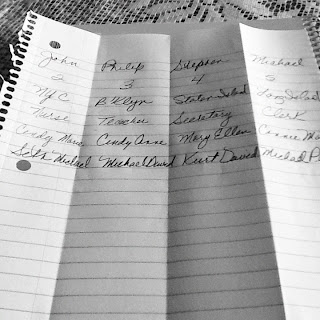 John Philip Stephen Michael
2 3 4 5
NYC BKlyn Staton Island Long Island
Nurse Teacher Secretary Clerk
Cindy Marie Cindy Anne Mary Ellen Connie
Michael Michael David Kurt David Michael